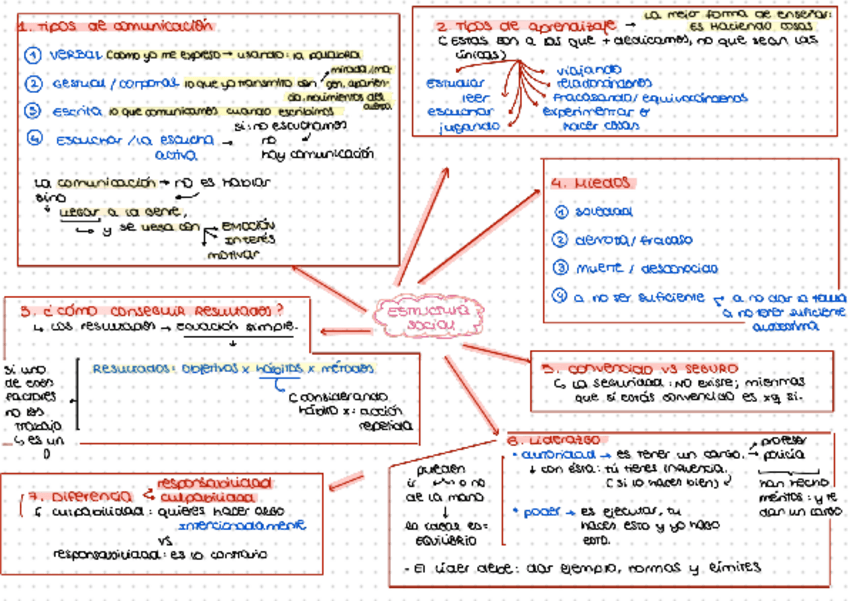 1. TIPOS DE COMUNICACIÓN
① VERBAL como yo me expreso → usando: la palabra
② GESTUAL / CORPORAL lo que yo transmito con mirada/ima-
gen, aparien-
cia, movimientos del
③ Escrita lo que comunicamos cuando escribimos
④ ESCUCHAR / la escucha
activa
→ si no escuchamos
no
hay comunicación
La comunicación → no es hablar
sino
llegar a la gente,
y se llega con → EMOCIÓN
INTERÉS
MOTIVAR
2. TIPOS DE aprendizaje → la mejor forma de enseñar:
es haciendo cosas
(ESTAS son a las que + dedicamos, no que sean las
únicas)
estudiar
leer
escuchar
jugando
viajando
relacionándonos
fracasando/equivocándonos
experimentar &
hacer cosas
4. MIEDOS
① soledad
② derrota/fracaso
③ muerte / desconocido
④ a no ser suficiente → a no dar la talla
a no tener suficiente
autoestima
ESTRUCTURA
SOCIAL
3. ¿CÓMO CONSEGUIR RESULTADOS?
↳ Los resultados → ecuación simple.
Resultados: objetivos x hábitos x métodos
considerando
hábito x: acción
repetida
si uno
de esos
factores
no los
trabajo
↳ es un
0
5. CONVENCIDO VS SEGURO
↳ La seguridad: NO EXISTE; mientras
que si estás convencido es xq si.
6. Liderazgo
• autoridad → es tener un cargo. → profesor
policía
↓ con ésta: tú tienes influencia.
(si lo haces bien)
han hecho
méritos: y te
dan un cargo
• poder → es ejecutar, tu
haces esto y yo hago
esto.
pueden
ir o no
de la mano
↓
lo ideal es:
EQUILIBRIO
- El líder debe: dar ejemplo, normas y límites
7. Diferencia < responsabilidad
culpabilidad
↳ culpabilidad: quieres hacer algo
intencionadamente
vs
responsabilidad: es lo contrario